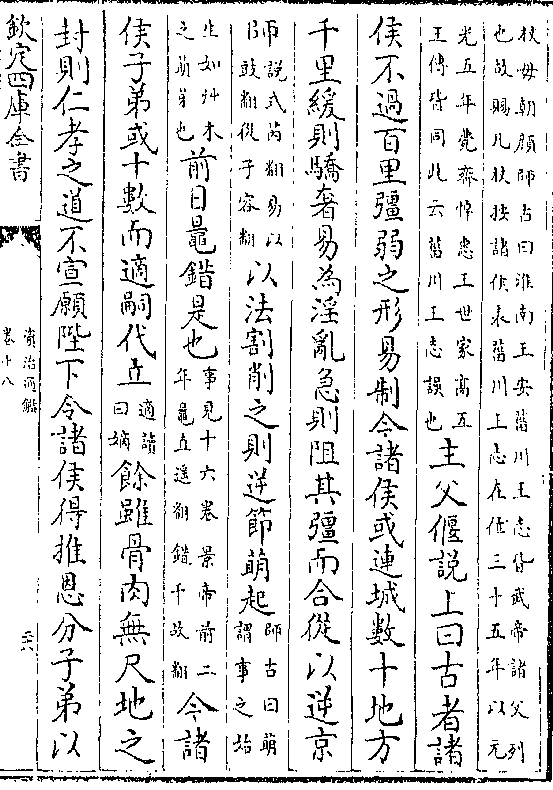 扶毋朝顔師古曰淮南王安菑川王志皆武帝諸父列
也故賜几杖按諸侯表菑川王志在位三十五年以元
光五年薨齊悼惠王世家髙五
王傳皆同此云菑川王志誤也
主父偃説上曰古者諸
侯不過百里彊弱之形易制今諸侯或連城數十地方
千里緩則驕奢易為淫亂急則阻其彊而合從以逆京
師説式芮翻易以
豉翻從子容翻
以法割削之則逆節萌起
師古曰萌
謂事之始
生如艸木
之萌芽也
前日鼂錯是也
事見十六卷景帝前二
年鼂直遥翻錯千故翻
今諸
侯子弟或十數而適嗣代立
適讀
曰嫡
餘雖骨肉無尺地之
封則仁孝之道不宣願陛下令諸侯得推恩分子弟以
欽定四庫全書
資治通鑑
卷十八